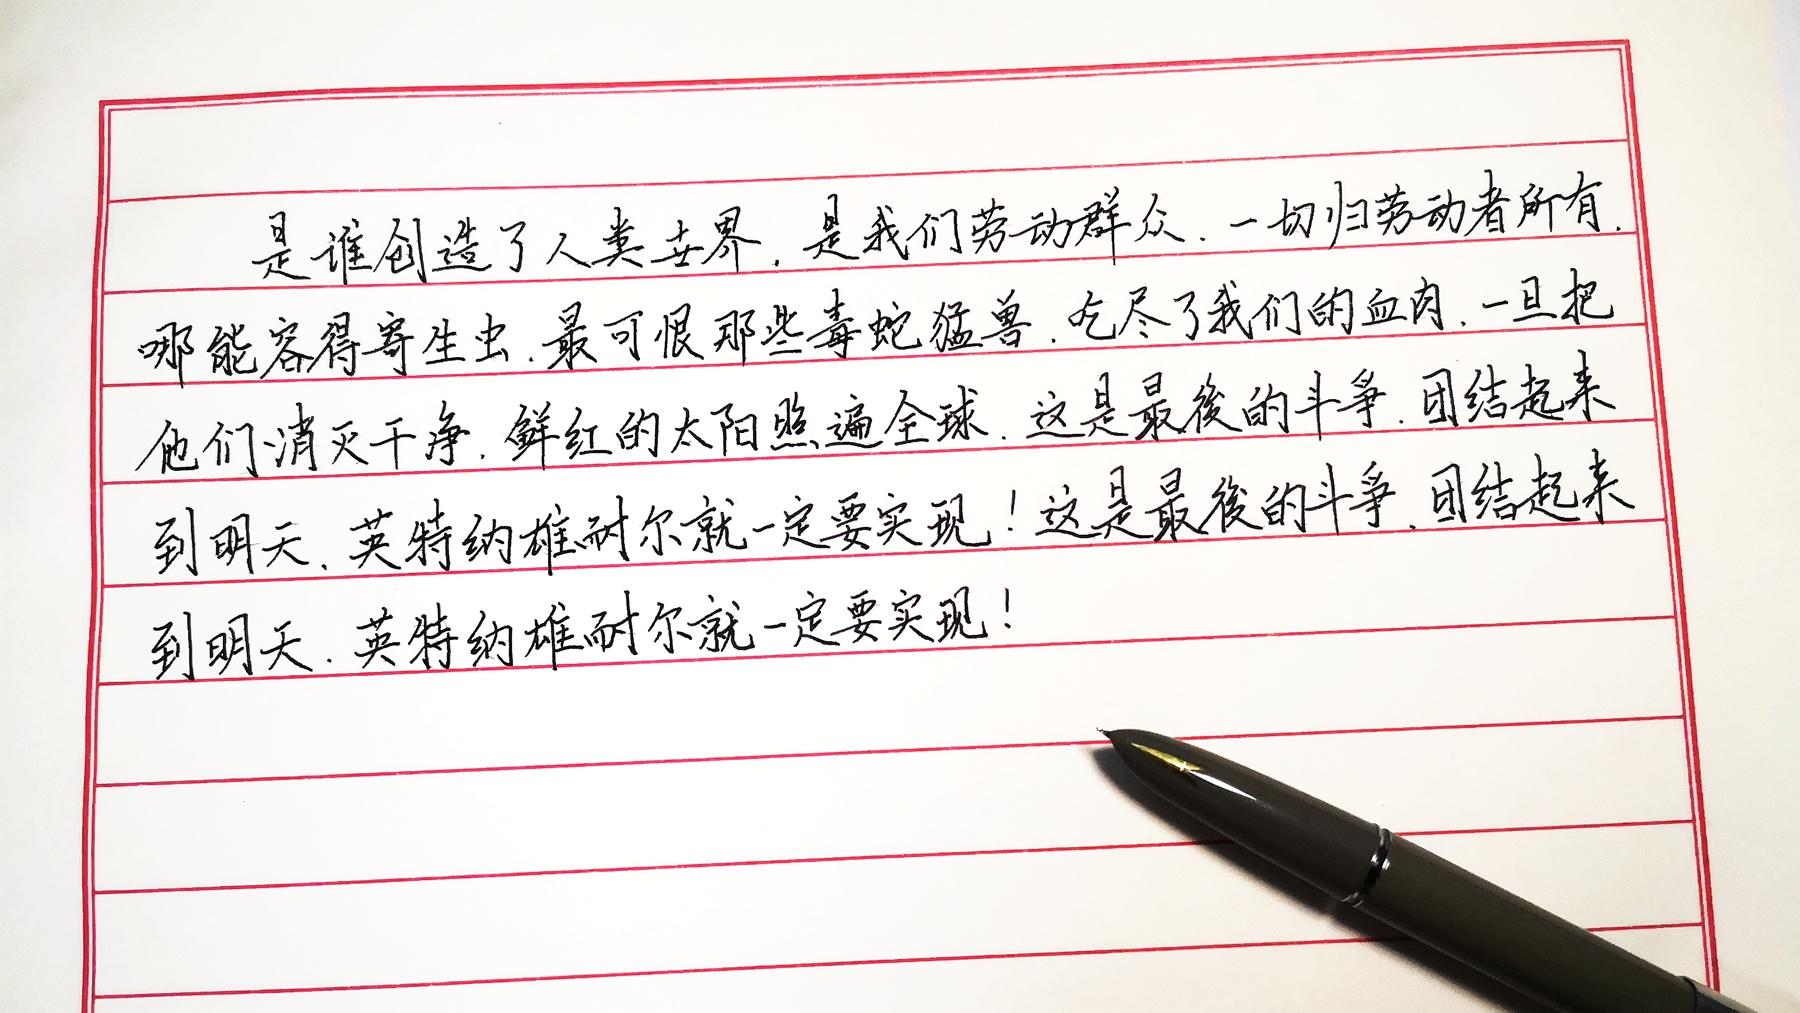 是谁创造了人类世界.是我们劳动群众.一切归劳动者所有.
哪能容得寄生虫.最可恨那些毒蛇猛兽.吃尽了我们的血肉.一旦把
他们消灭干净.鲜红的太阳照遍全球.这是最後的斗争.团结起来
到明天.英特纳雄耐尔就一定要实现!这是最後的斗争.团结起来
到明天.英特纳雄耐尔就一定要实现!